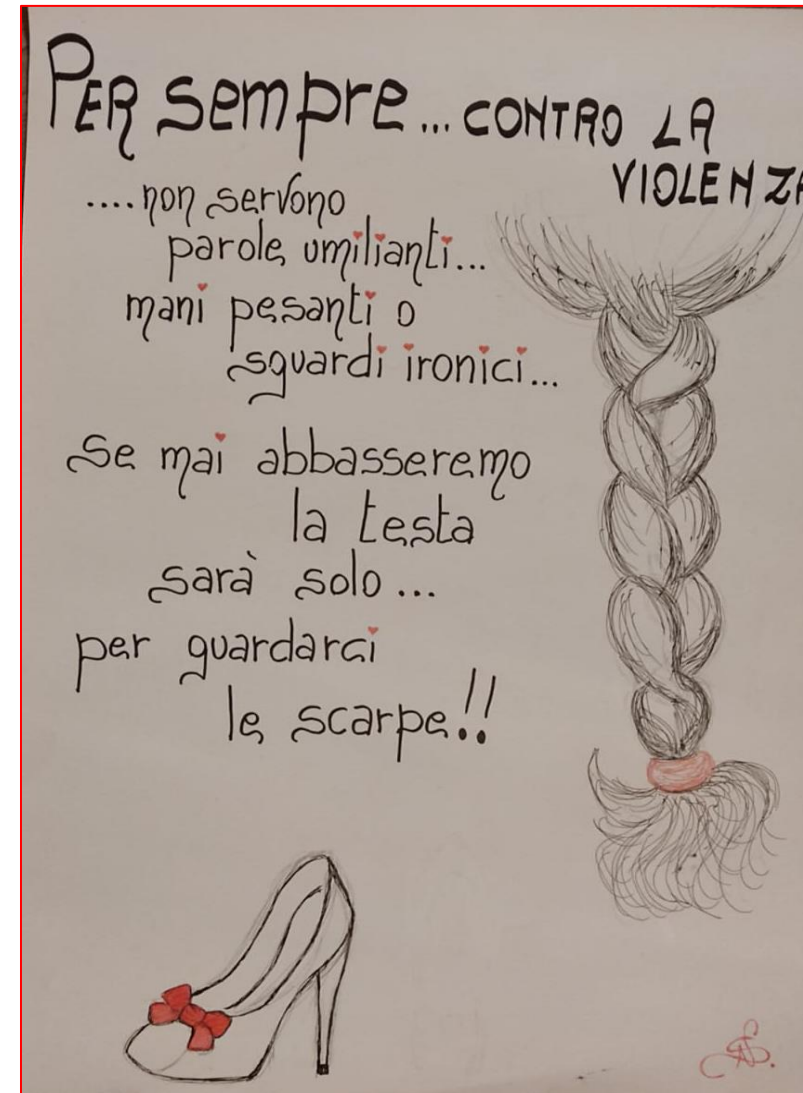 PER sempre... CONTRO LA
VIOLENZA
....non servono
parole umilianti...
mani pesanti o
sguardi ironici...
Se mai abbasseremo
la testa
sarà solo...
per guardarci
le scarpe!!